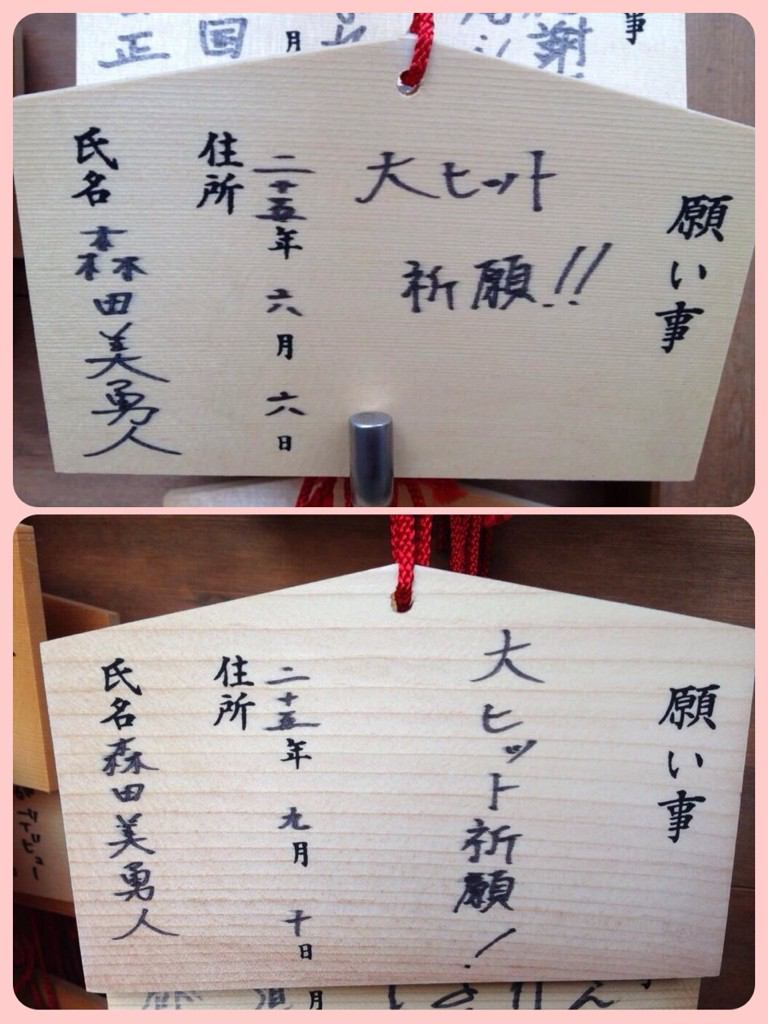 願い事
大ヒット
祈願!!
二十五年 六月 六日
住所
氏名 森田美勇人
事
謝
月
国
正
願い事
大ヒット祈願!
二十五年 九月 十日
住所
氏名 森田美勇人
月